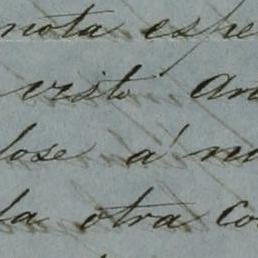 nota espe
visto An
dose á m
la otra co